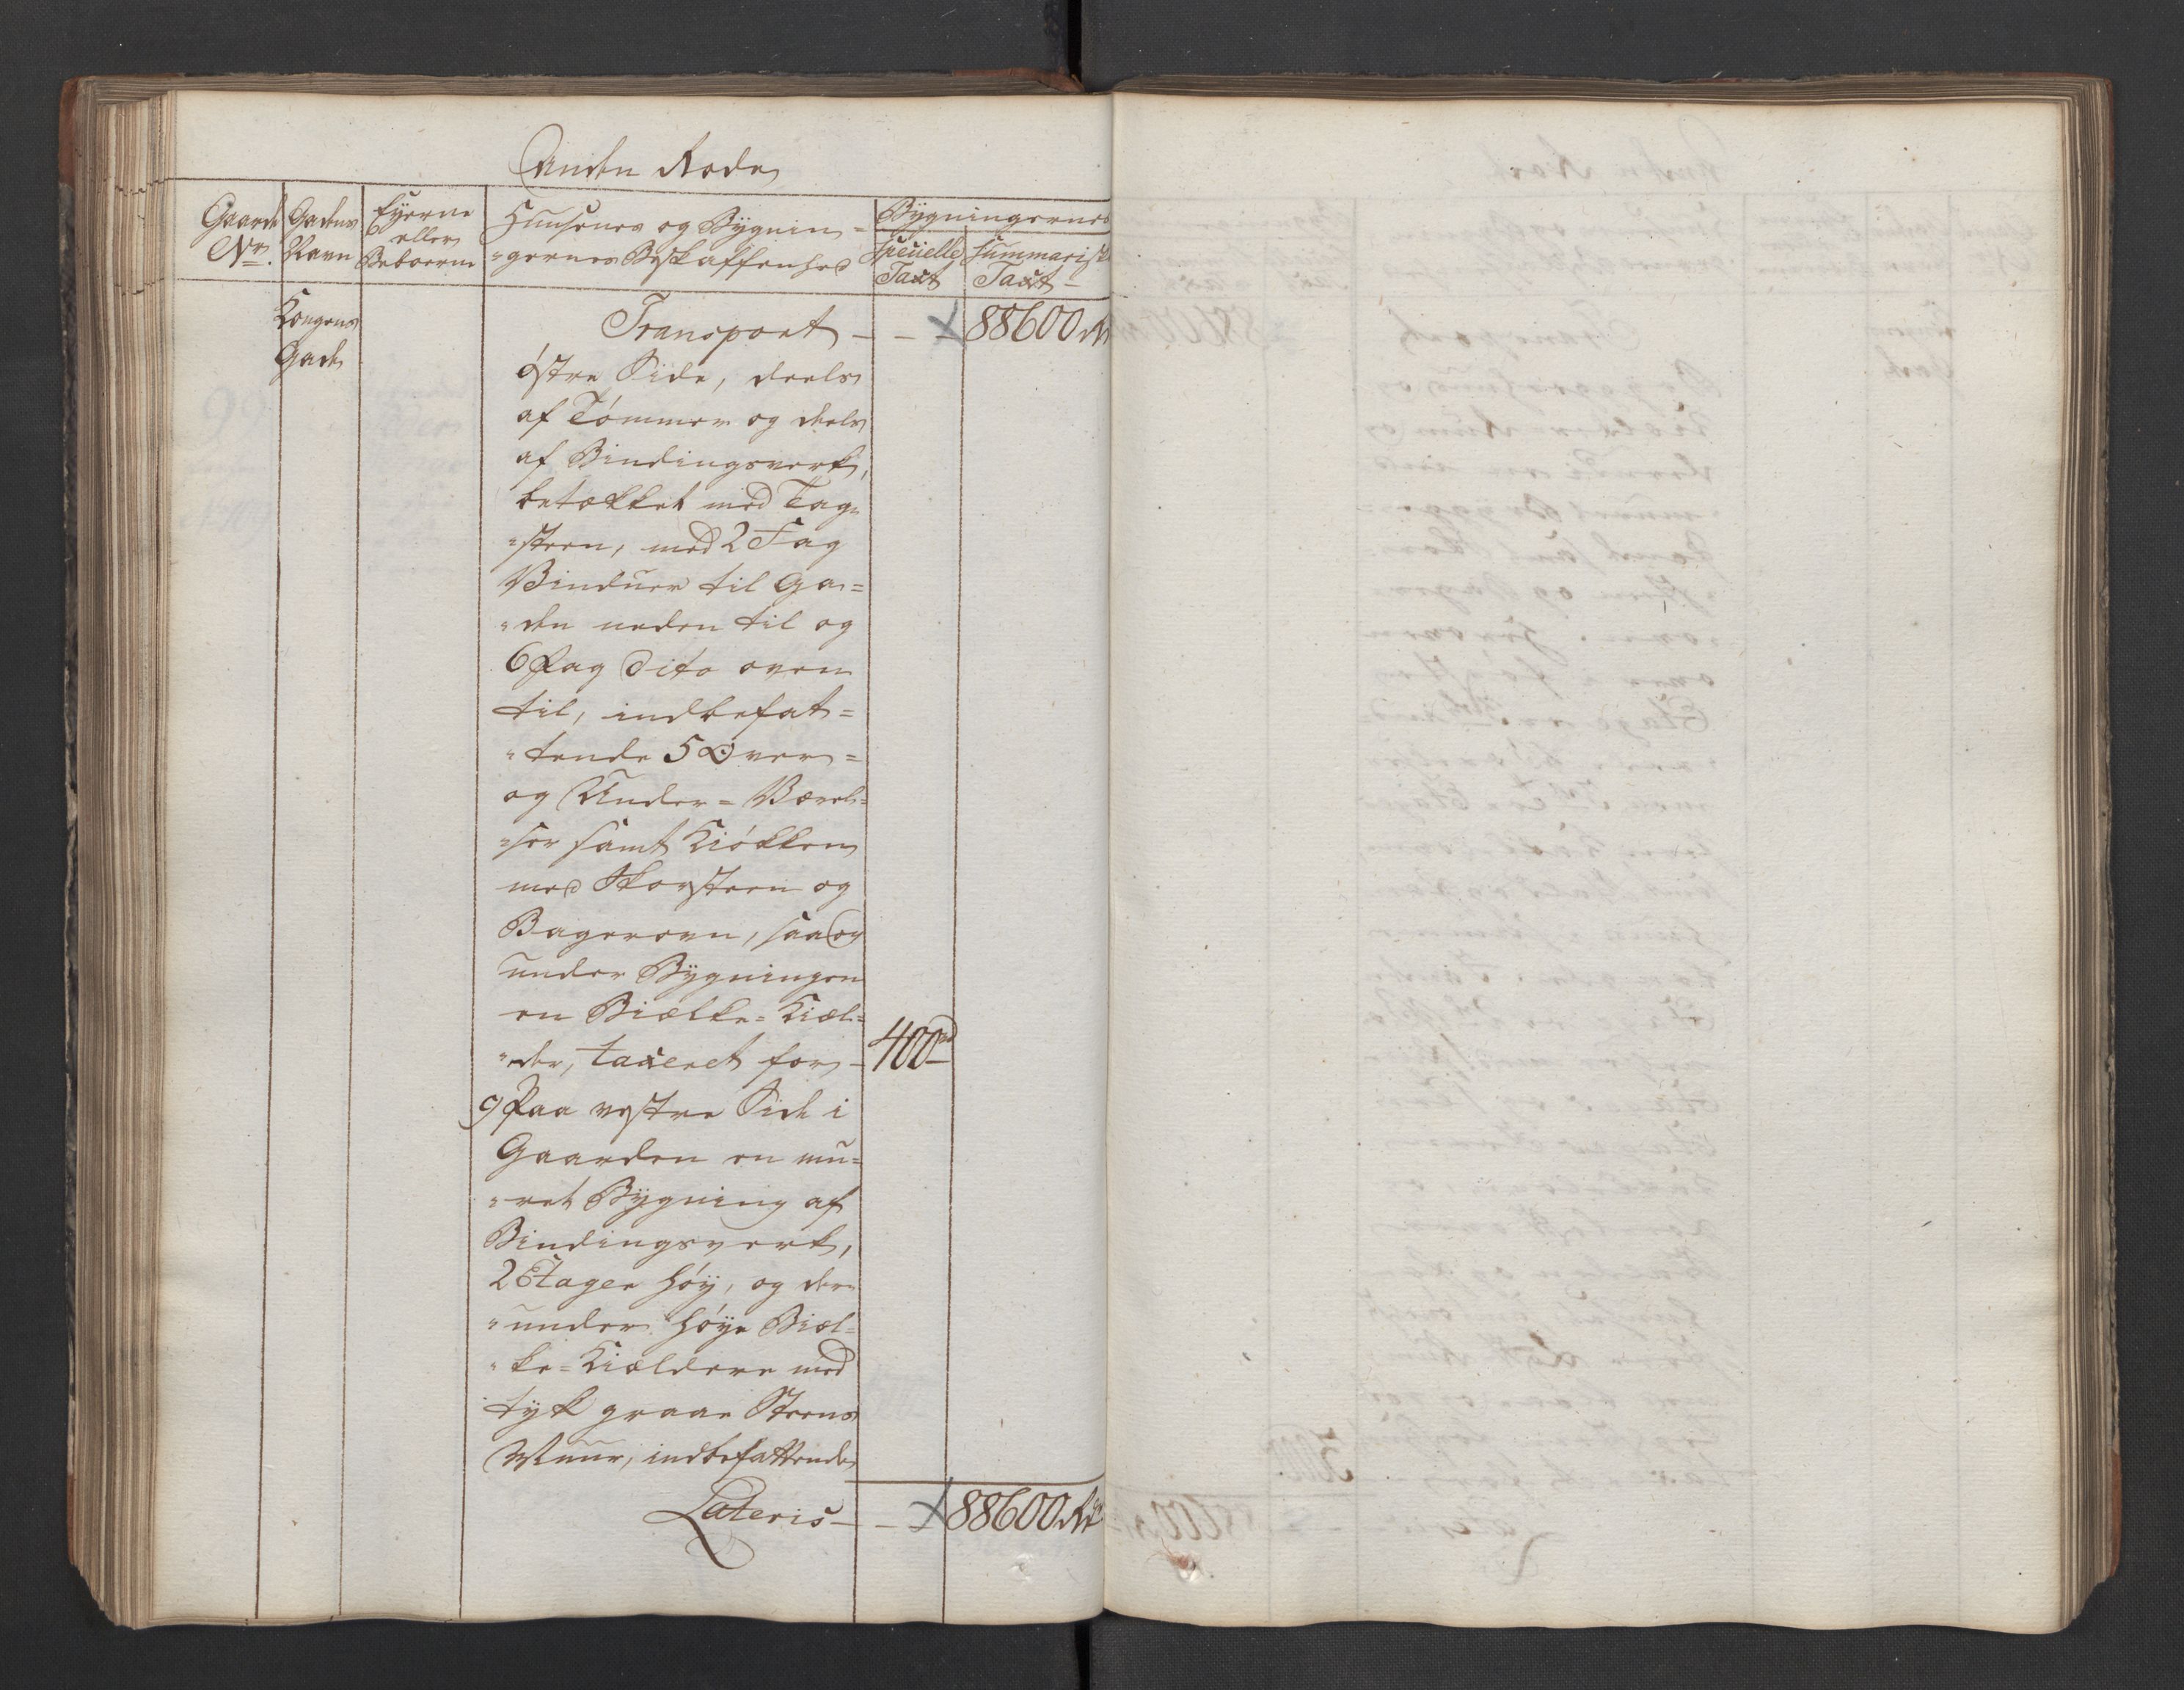 Anden Rode
Gaards
No.
Gadens
Navn
Eyerne
eller
Beboerne
Huusenes og Bygnin=
"gernes Beskaffenhed
Bygningernes
Specielle
Taxt
Summariske
Taxt
Kongens
Gade
Transport - - 88600 Rd
östre Side, deels
af Tömmer og deels
af Bindingsverk,
betækket med Tag=
"steen, med 2 Fag
Vinduer til Ga=
"den neden til og
6 Fag dito oven
til, indbefat=
"tende 5 Over=
og Under=Værel=
"ser samt Kiökken
med Skorsteen og
Bagerovn, saa og
under Bygningen
en Biælke=Kiæl=
"der, taxeret for - 400 rd
9 Paa vestre Side i
Gaarden en mu=
"ret Bygning af
Bindingsverk,
2 Etager höy, og der=
"under höye Biæl=
"ke=Kieldere med
tyk graae Steens
Muur, indbefattende
Lateris - - 88600 Rd